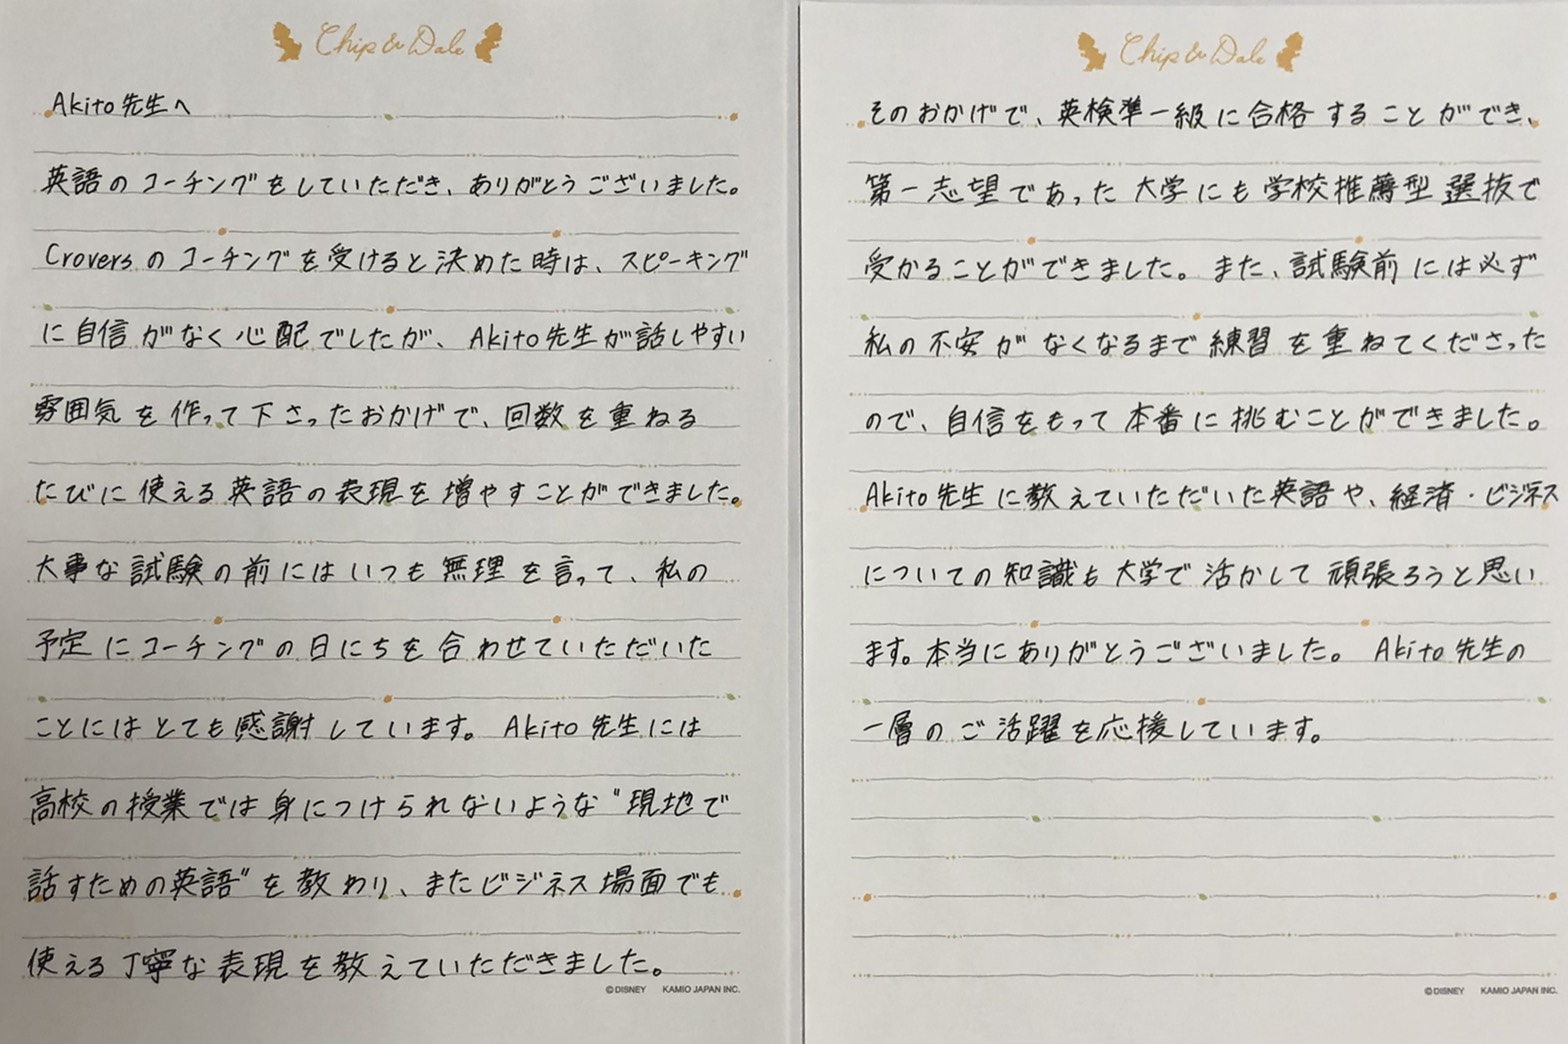 Chip & Dale
Akito先生へ
英語のコーチングをしていただき、ありがとうございました。
Croversのコーチングを受けると決めた時は、スピーキング
に自信がなく心配でしたが、Akito先生が話しやすい
雰囲気を作って下さったおかげで、回数を重ねる
たびに使える英語の表現を増やすことができました。
大事な試験の前にはいつも無理を言って、私の
予定にコーチングの日にちを合わせていただいた
ことにはとても感謝しています。Akito先生には
高校の授業では身につけられないような"現地で
話すための英語"を教わり、またビジネス場面でも
使える丁寧な表現を教えていただきました。
©DISNEY KAMIO JAPAN INC.
Chip & Dale
そのおかげで、英検準一級に合格することができ、
第一志望であった大学にも学校推薦型選抜で
受かることができました。また、試験前には必ず
私の不安がなくなるまで練習を重ねてくださった
ので、自信をもって本番に挑むことができました。
Akito先生に教えていただいた英語や、経済・ビジネス
についての知識も大学で活かして頑張ろうと思い
ます。本当にありがとうございました。 Akito先生の
一層のご活躍を応援しています。
©DISNEY KAMIO JAPAN INC.